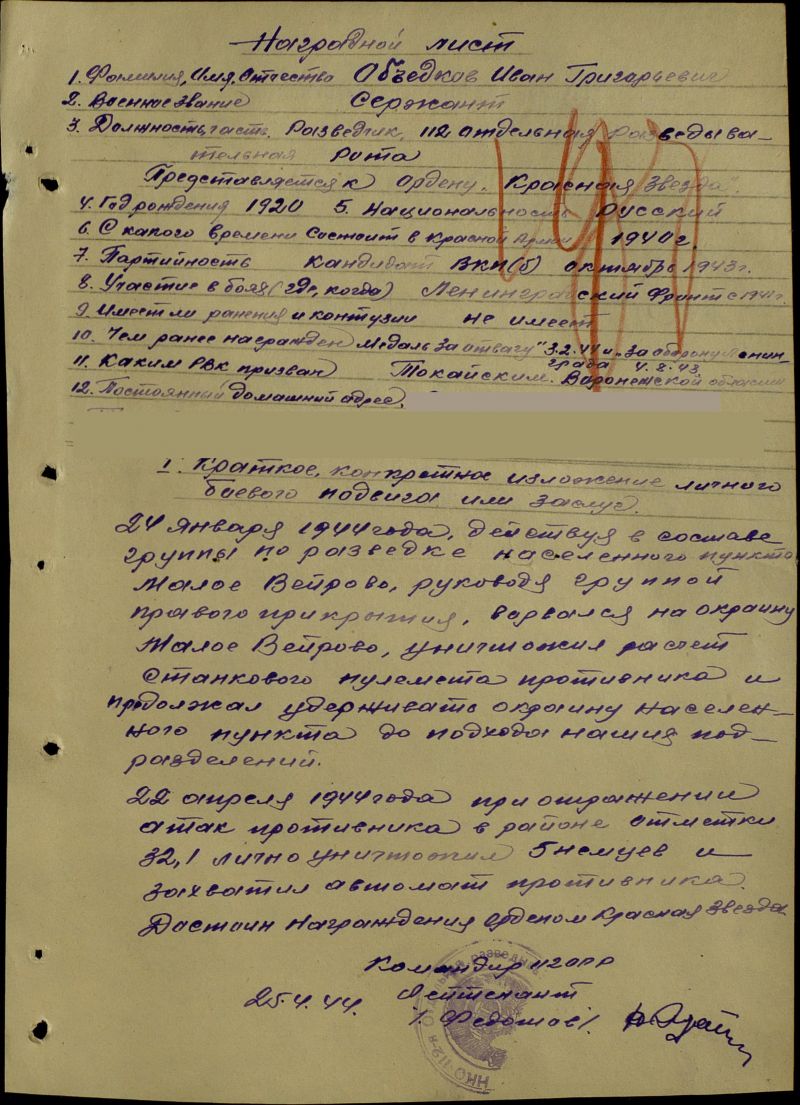 Наградной лист
1. Фамилия, Имя, Отчество Объедков Иван Григарьевич
2. Военное звание Сержант
3. Должность, часть. Разведчик, 112 отдельная разведыва-
тельная рота
Представляется к Ордену „Красная Звезда".
4. Год рождения 1920 5. Национальность Русский
6. С какого времени состоит в Красной Армии 1940 г.
7. Партийность кандидат ВКП(б) октябрь 1943 г.
8. Участие в боях (где, когда) Ленинградский Фронт с 1941 г.
9. Имеет ли ранения и контузии не имеет
10. Чем ранее награжден Медаль „За отвагу" 3.2.44 и „За оборону Ленин-
града 4.8.43
11. Каким РВК призван Токайским. Варонежской области
12. Постоянный домашний адрес.
I. Краткое, конкретное изложение личного
боевого подвига или заслуг.
24 января 1944 года, действуя в составе
группы по разведке населенного пункта
Малое Вейрово, руководя группой
правого прикрытия, ворвался на окраину
Малое Вейрово, уничтожил расчет
станкового пулемета противника и
продолжал удерживать окраину населен-
ного пункта до подхода наших под-
разделений.
22 апреля 1944 года при отражении
атак противника в районе отметки
32,1 лично уничтожил 5 немцев и
захватил автомат противника.
Достоин награждения орденом Красная Звезда
Командир 112 ОРР
25.4.44. Лейтенант
/Федотов/.
НКО 112-я Отдельная разведыв